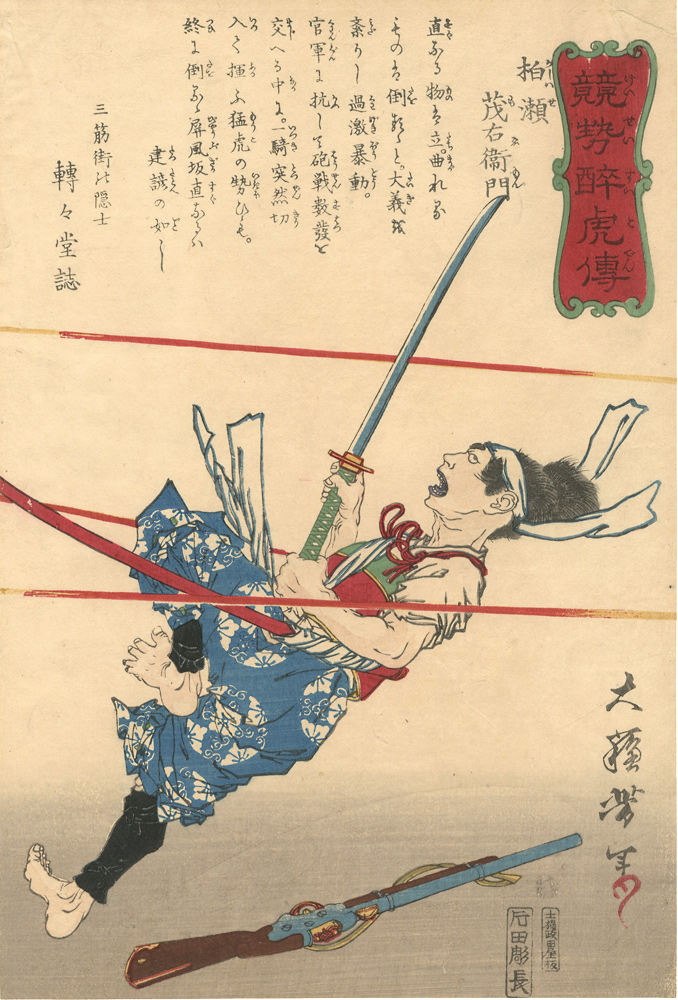 競勢酔虎傳
けいせいすいこでん
柏瀬
茂右衞門
直なる物は立曲れる
ものは倒るゝと。大義を
紊りし過激暴動。
官軍に抗して砲戦数發を
交へる中に。一騎突然切
入て揮ふ猛虎の勢ひも。
終に倒るゝ屏風坂直ならバ
建諺の如し
三筋街の隠士
轉々堂誌
大蘓芳年
片田彫長